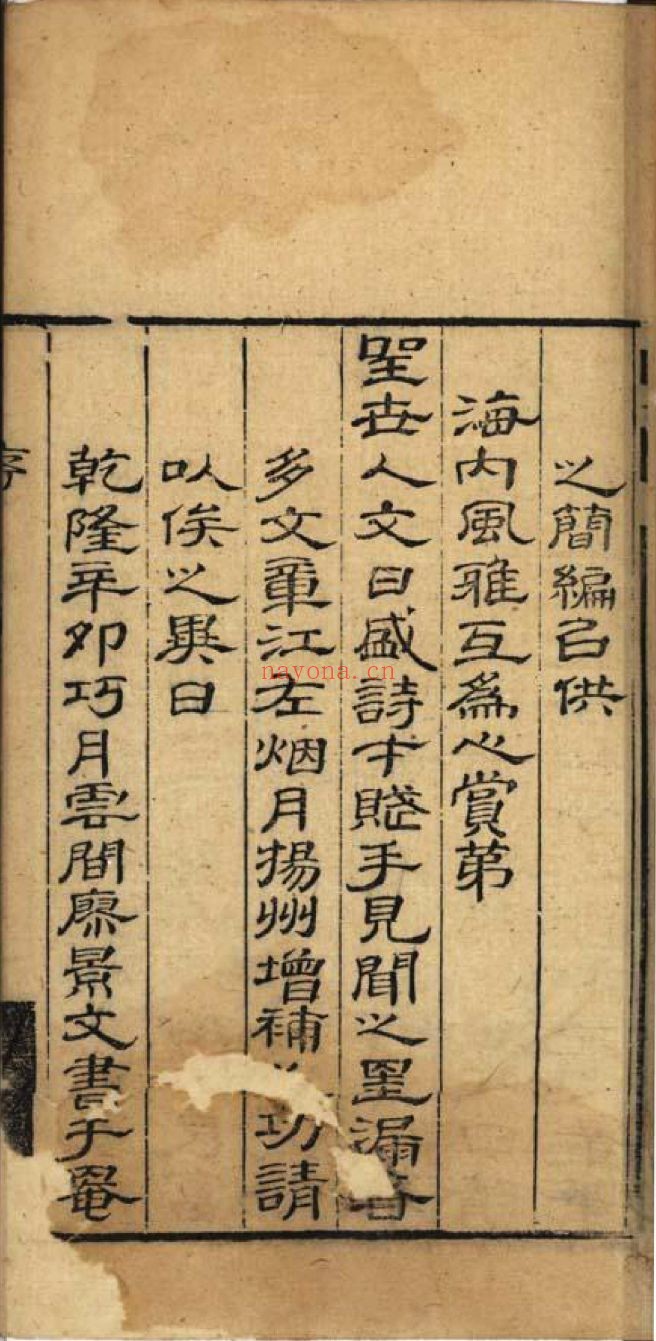 之簡編㠯供
海内風雅互爲心賞第
聖世人文日盛詩才賦手見聞之罣漏
多文章江左烟月揚州增補功請
以俟之異日
乾隆辛卯巧月雲間廖景文書于罨
序
nayona.cn